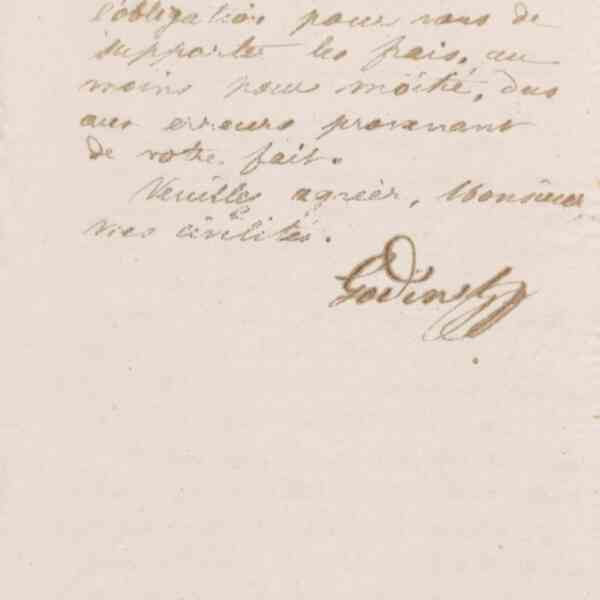 l'obligation pour vous de
supporter les frais, au
moins pour moitié, dus
aux erreurs provenant
de votre fait.
Veuillez agréer, Monsieur
mes civilités.
Godin